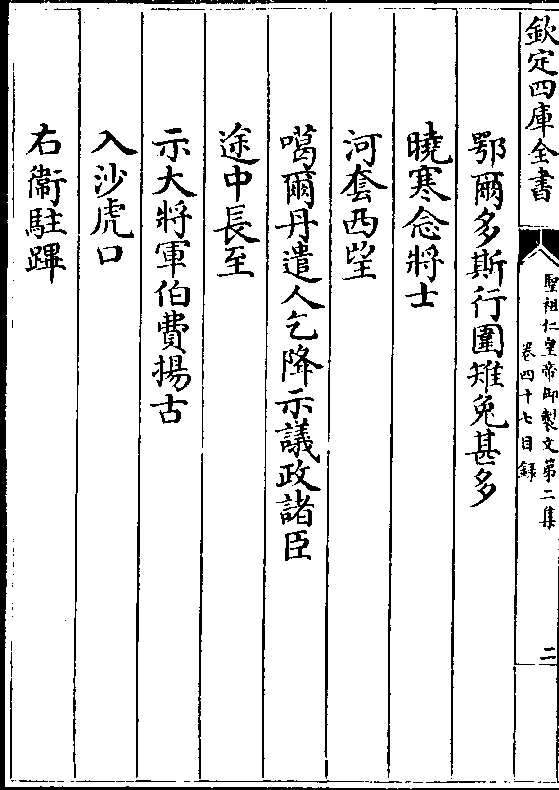 欽定四庫全書
聖祖仁皇帝御製文第二集
卷四十七目録
二
鄂爾多斯行圍雉兔甚多
曉寒念將士
河套西望
噶爾丹遣人乞降示議政諸臣
途中長至
示大將軍伯費揚古
入沙虎口
右衞駐蹕